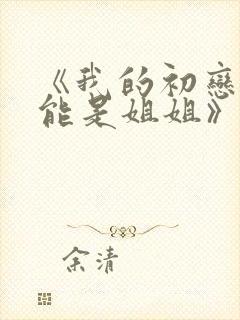 《我的初戀
能是姐姐》
余清